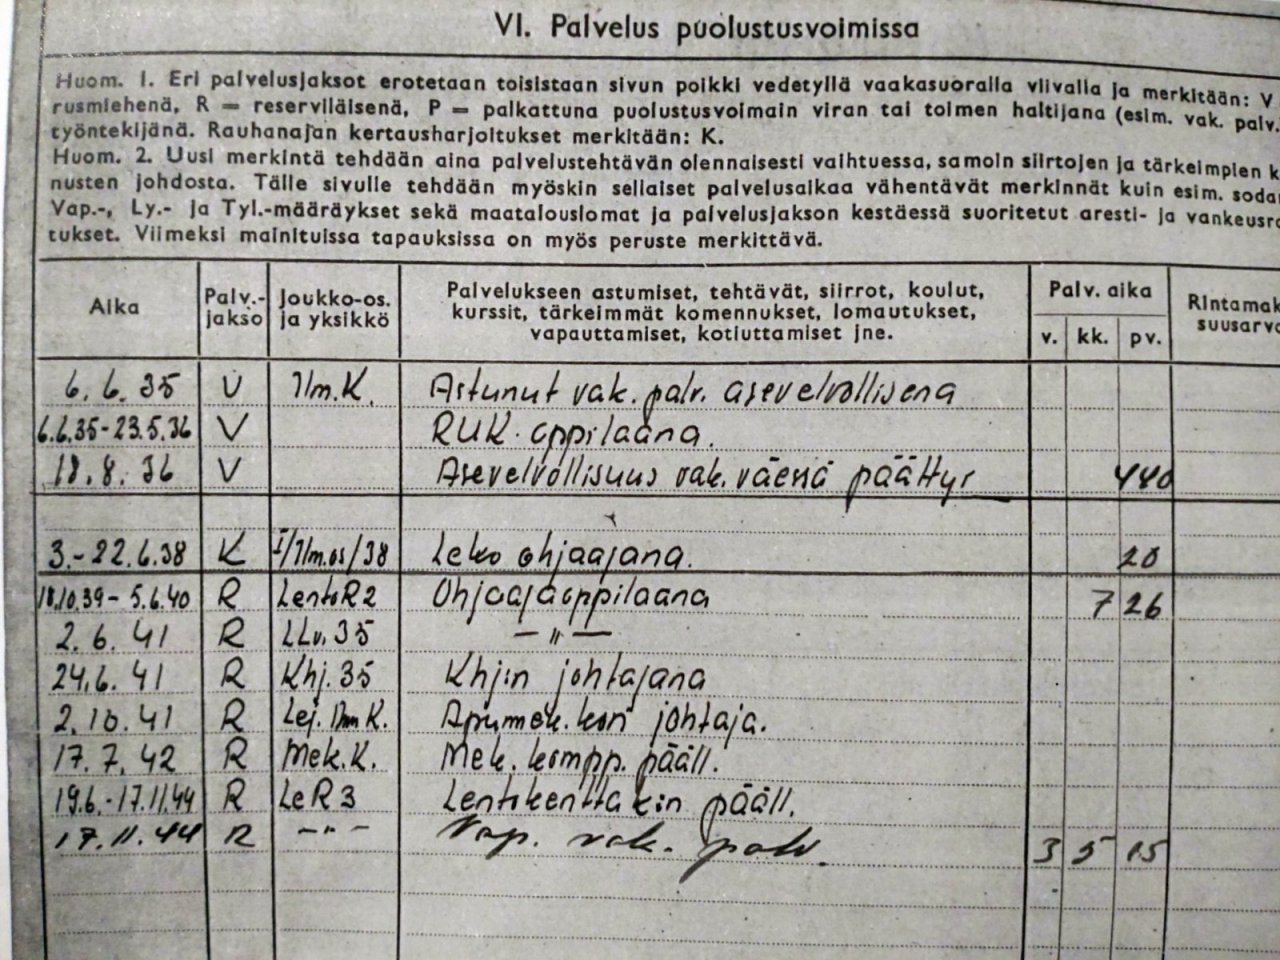 VI. Palvelus puolustusvoimissa
Huom. 1. Eri palvelusjaksot erotetaan toisistaan sivun poikki vedetyllä vaakasuoralla viivalla ja merkitään: V
rusmiehenä, R = reserviläisenä, P = palkattuna puolustusvoimain viran tai toimen haltijana (esim. vak. palv.
työntekijänä. Rauhanajan kertausharjoitukset merkitään: K.
Huom. 2. Uusi merkintä tehdään aina palvelustehtävän olennaisesti vaihtuessa, samoin siirtojen ja tärkeimpien k
nusten johdosta. Tälle sivulle tehdään myöskin sellaiset palvelusaikaa vähentävät merkinnät kuin esim. sodan
Vap.-, Ly.- ja Tyl.-määräykset sekä maatalouslomat ja palvelusjakson kestäessä suoritetut aresti- ja vankeusra
tukset. Viimeksi mainituissa tapauksissa on myös peruste merkittävä.
Aika Palv.-jakso Joukko-os. ja yksikkö Palvelukseen astumiset, tehtävät, siirrot, koulut, kurssit, tärkeimmät komennukset, lomautukset, vapauttamiset, kotiuttamiset jne. Palv. aika v. kk. pv. Rintamak suusarvo
6. 6. 35 V Ilm.K. Astunut vak. palv. asevelvollisena
6.6.35-23.5.36 V RUK. oppilaana.
18. 8. 36 V Asevelvollisuus vak. väessä päättyy 440
3.-22.6.38 K I/Ilm.os/38 Leko ohjaajana. 20
18.10.39-5.6.40 R LentoR2 Ohjaajaoppilaana 7 26
2. 6. 41 R LLv. 35 — " —
24.6. 41 R Khj. 35 Khj:n johtajana
2. 10. 41 R Lej. Ilm K. Apumek. kori johtaja.
17. 7. 42 R Mek. K. Mek. kompp. pääll.
19.6.-17.11.44 R LeR 3 Lentokenttä k:n pääll.
17. 11. 44 R - " - Vap. vak. palv. 3 5 15